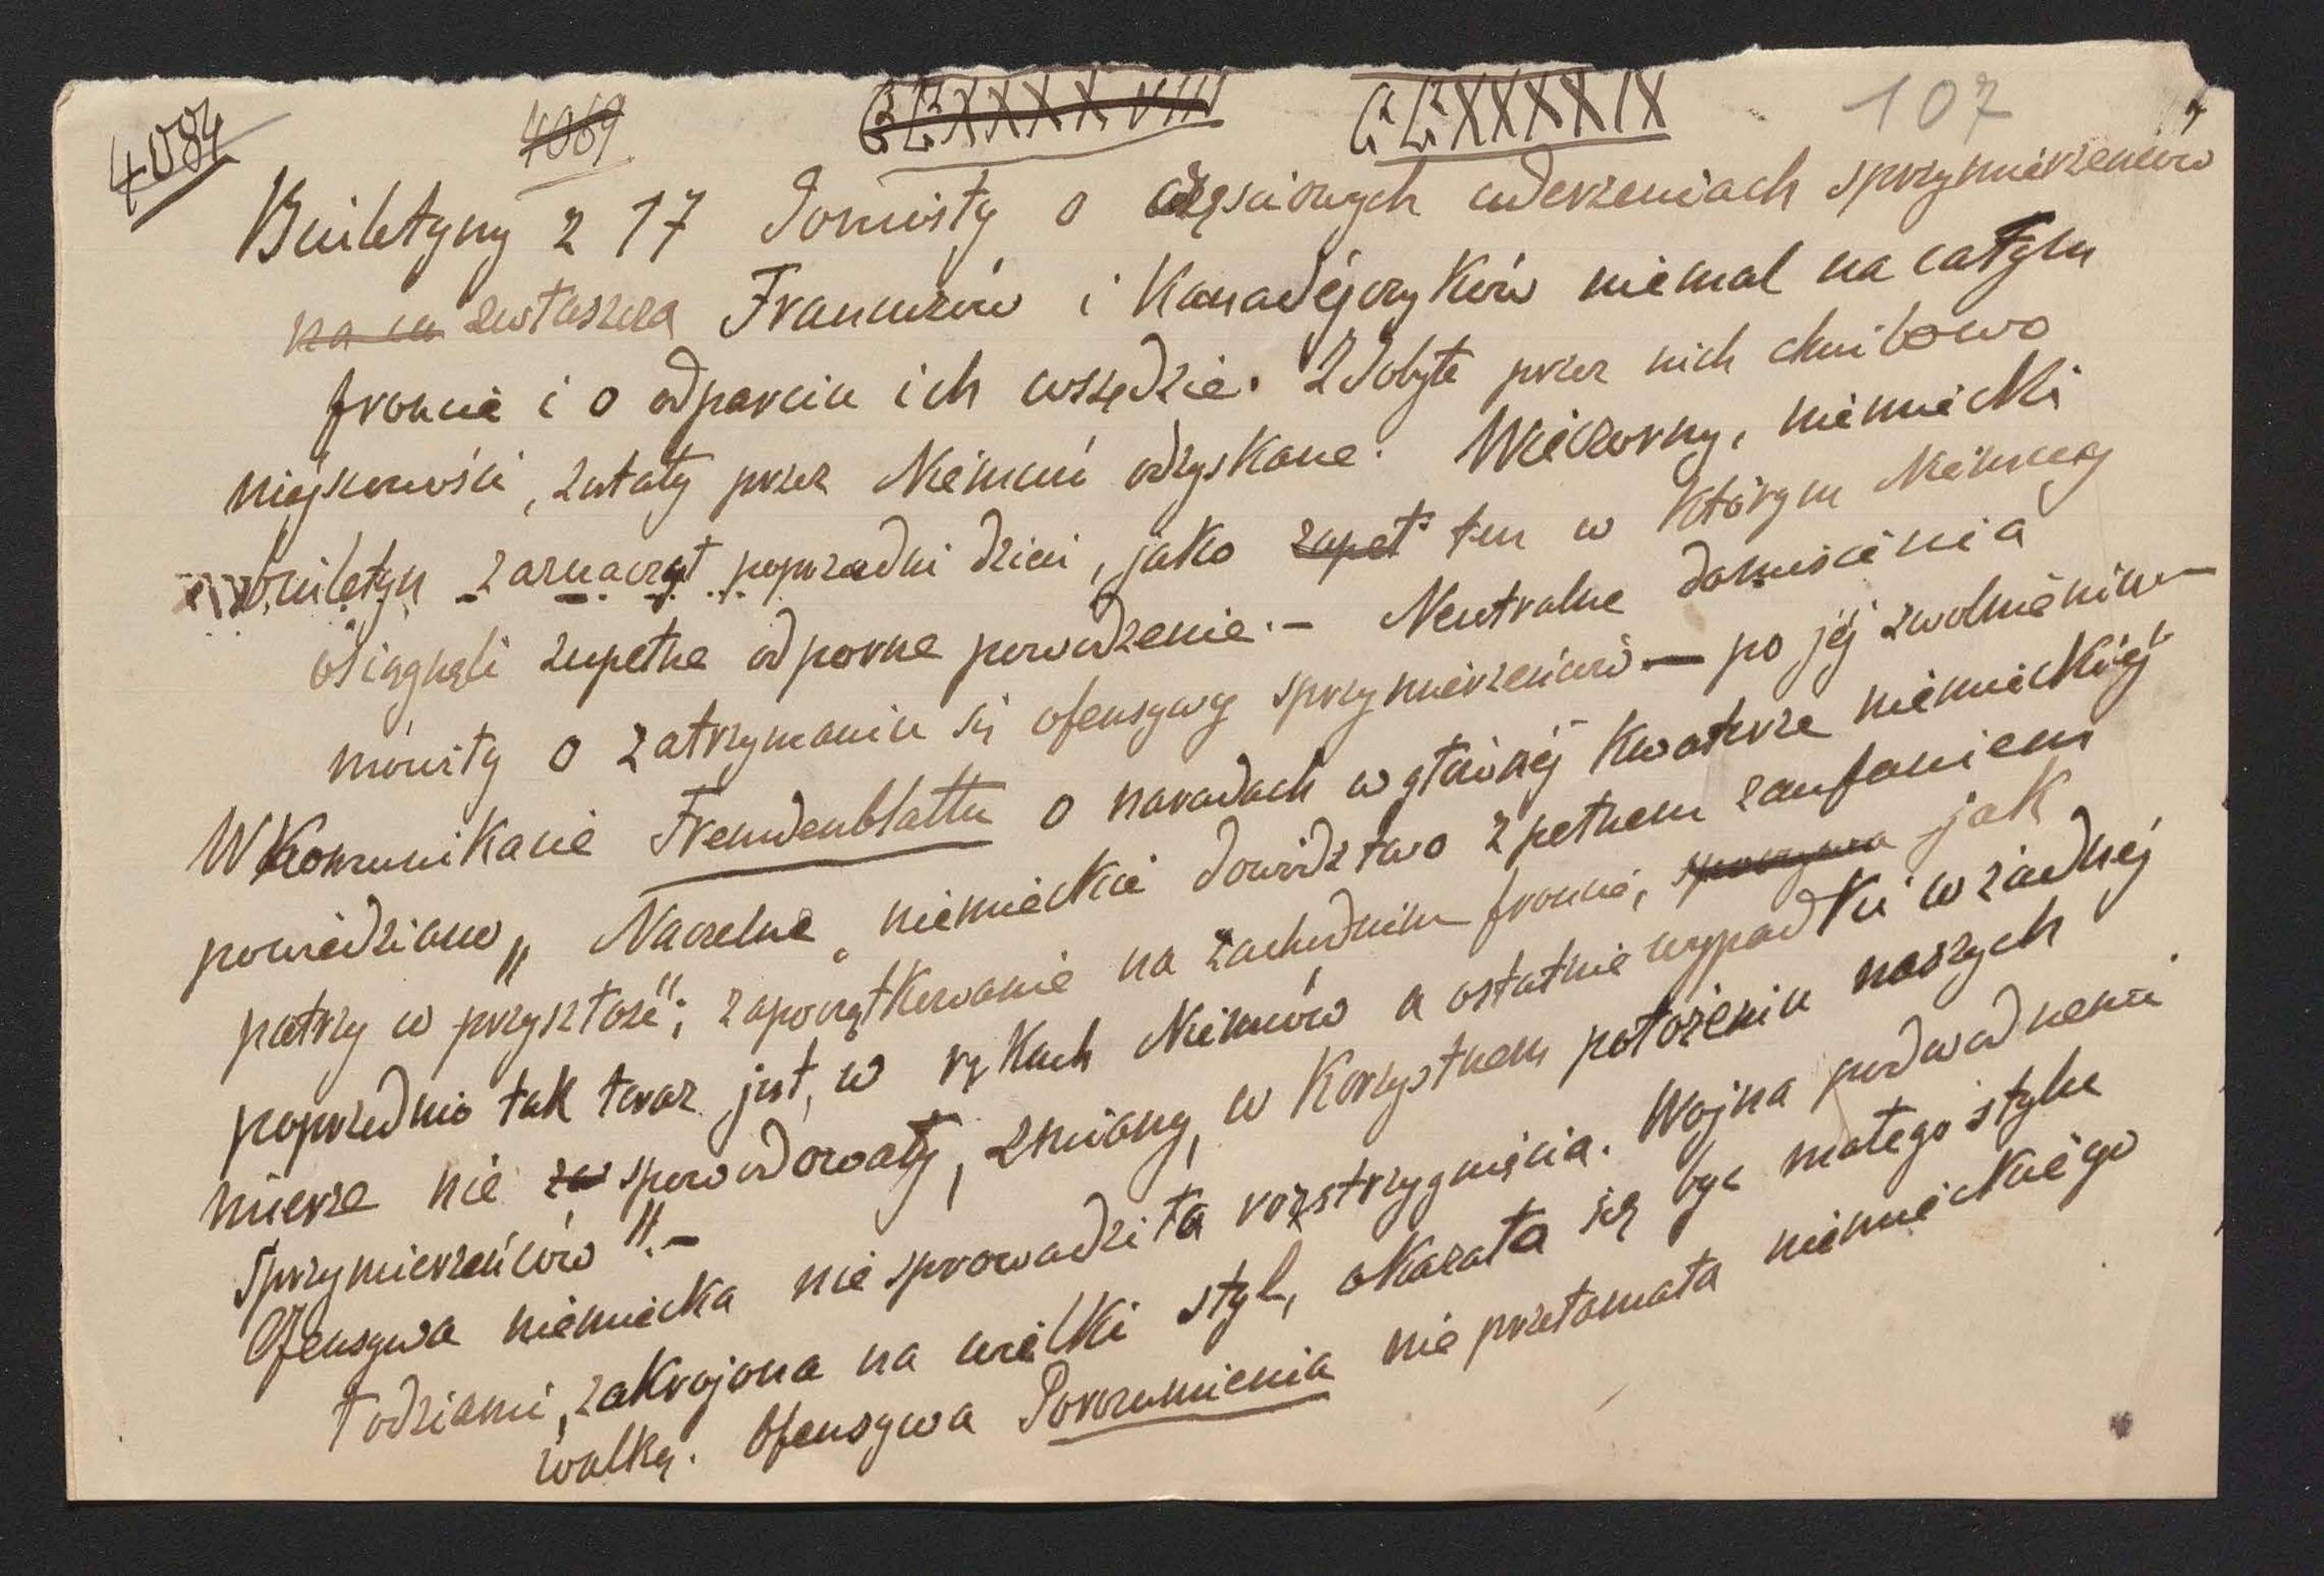 4084 4069 CLXXXXVIII CLXXXXIX 107
Biuletyny z 17 donosiły o częściowych uderzeniach sprzymierzeńców
na ca zwłaszcza Francuzów i Kanadéjczyków niemal na całym
froncie i o odparciu ich wszędzie. Zdobyte przez nich chwilowo
miejscowości, zstały przez Niemców odzyskane. Wieczorny, niemiecki
biuletyn zaznaczył poprzedni dzień, jako zupeł ten w którym Niemcy
osiągnęli zupełne odporne powodzenie. — Neutralne doniesienia
mówiły o zatrzymaniu się ofensywy sprzymierzeńców — po jéj zwolnieniu —
W Komunikacie Fremdenblattu o naradach w głównéj Kwaterze niemieckiéj
powiedziano „Naczelne niemieckie dowództwo z pełnem zaufaniem
patrzy w przyszłość"; zapoczątkowanie na zachodnim froncie, spoczywa jak
poprzednio tak teraz jest, w rękach Niemców a ostatnie wypadki w żadnéj
mierze nie za spowodowały, zmiany, w Korzystnem położeniu naszych
Sprzymierzeńców". —
Ofensywa niemiecka nie sprowadziła rozstrzygnięcia. Wojna podwodnemi
łodziami, zakrojona na wielki styl, okazała się być małego stylu
walką. Ofensywa Porozumienia nie przełamała niemieckiego